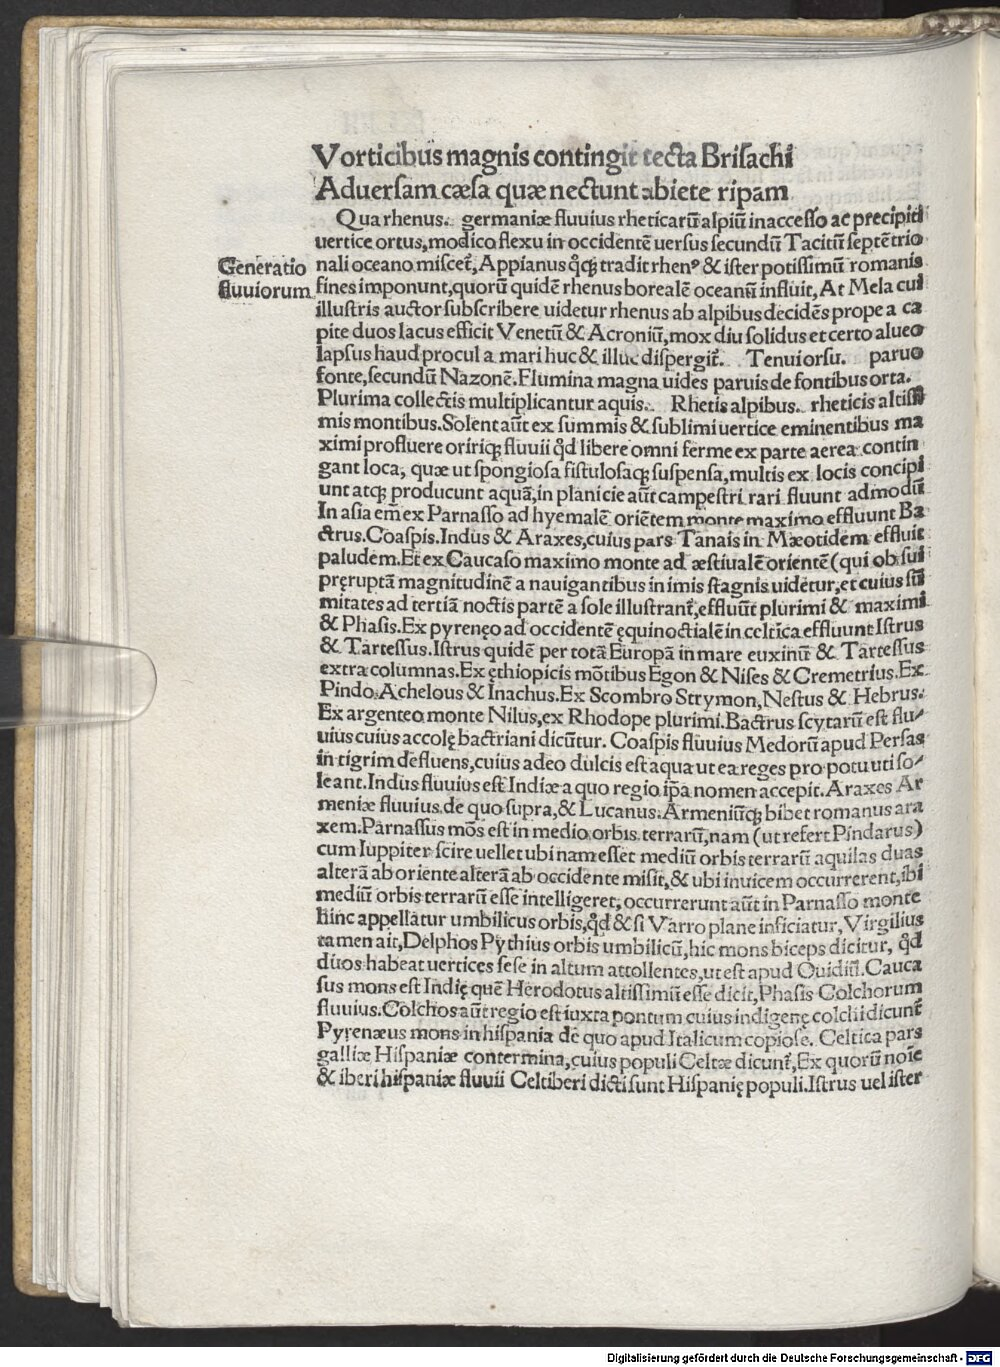 Vorticibus magnis contingit tecta Brisachi
Aduersam cæsa quæ nectunt abiete ripam
Qua rhenus. germaniæ fluuius rheticarū alpiū inaccesso ac precipiti
uertice ortus, modico flexu in occidentē uersus secundū Tacitū septētrio
Generatio fluuiorum
nali oceano miscet᷑, Appianus q̊q; tradit rhenꝰ & ister potissimū romanis
fines imponunt, quorū quidē rhenus borealē oceanū influit, At Mela cui
illustris auctor subscribere uidetur rhenus ab alpibus decidēs prope a ca
pite duos lacus efficit Venetū & Acroniū, mox diu solidus et certo alueo
lapsus haud procul a mari huc & illuc dispergit᷑. Tenui orsu. paruo
fonte, secundū Nazonē. Flumina magna uides paruis de fontibus orta.
Plurima collectis multiplicantur aquis. Rhetis alpibus. rheticis altissi
mis montibus. Solent aūt ex summis & sublimi uertice eminentibus ma
ximi profluere oririq; fluuii q̊d libere omni ferme ex parte aerea contin
gant loca, quæ ut spongiosa fistulosaq; suspensa, multis ex locis concipi
unt atq; producunt aquā, in planicie aūt campestri rari fluunt admodū
In asia em̄ ex Parnasso ad hyemalē oriētem monte maximo effluunt Ba
ctrus. Coaspis. Indus & Araxes, cuius pars Tanais in Mæotidem effluit
paludem. Et ex Caucaso maximo monte ad æstiualē orientē (qui ob sui
pręruptā magnitudinē a nauigantibus in imis stagnis uidetur, et cuius sū
mitates ad tertiā noctis partē a sole illustrant᷑, effluūt plurimi & maximi
& Phasis. Ex pyreneo ad occidentē ęquinoctialē in celtica effluunt Istrus
& Tartessus. Istrus quidē per totā Europā in mare euxinū & Tartessus
extra columnas. Ex ęthiopicis mōtibus Egon & Nises & Cremetrius. Ex
Pindo. Achelous & Inachus. Ex Scombro Strymon, Nestus & Hebrus.
Ex argenteo monte Nilus, ex Rhodope plurimi. Bactrus scytarū est flu⸗
uius cuius accolę bactriani dicūtur. Coaspis fluuius Medorū apud Persas
in tigrim defluens, cuius adeo dulcis est aqua ut ea reges pro potu uti so⸗
leant. Indus fluuius est Indiæ a quo regio ip̄a nomen accepit. Araxes Ar
meniæ fluuius de quo supra, & Lucanus. Armeniūq; bibet romanus ara
xem. Parnassus mōs est in medio orbis terrarū, nam (ut refert Pindarus)
cum Iuppiter scire uellet ubi nam esset mediū orbis terrarū aquilas duas
alterā ab oriente alterā ab occidente misit, & ubi inuicem occurrerent, ibi
mediū orbis terrarū esse intelligeret, occurrerunt aūt in Parnasso monte
hinc appellatur umbilicus orbis, q̊d & si Varro plane inficiatur, Virgilius
tamen ait, Delphos Pythius orbis umbilicū, hic mons biceps dicitur, q̊d
duos habeat uertices sese in altum attollentes, ut est apud Ouidiū. Cauca
sus mons est Indię quē Herodotus altissimū esse dicit, Phasis Colchorum
fluuius. Colchos aūt regio est iuxta pontum cuius indigenę colchi dicunt᷑
Pyrenæus mons in hispania de quo apud Italicum copiose. Celtica pars
galliæ Hispaniæ contermina, cuius populi Celtæ dicunt᷑, Ex quorū noīe
& iberi hispaniæ fluuii Celtiberi dicti sunt Hispanię populi. Istrus uel ister
Digitalisierung gefördert durch die Deutsche Forschungsgemeinschaft - DFG